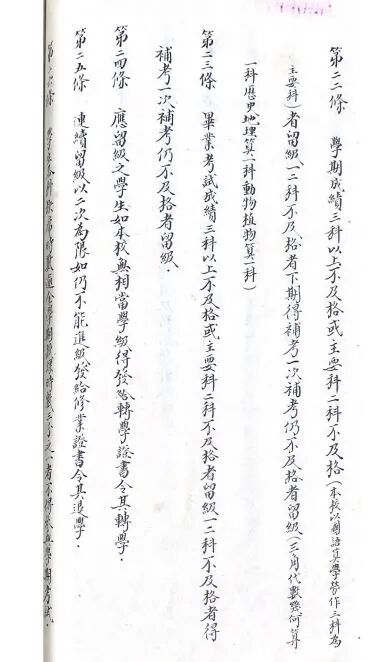 第二二條　學期成績三科以上不及格或主要科二科不及格(本校以國語算學勞作三科為
主要科)者留級一二科不及格者下期得補考一次補考仍不及格者留級(三角代數幾何算
一科歷史地理算一科動物植物算一科)
第二三條　畢業考試成績三科以上不及格或主要科二科不及格者留級一二科不及格者得
補考一次補考仍不及格者留級.
第二四條　應留級之學生如本校無相當學級得發給轉學證書令其轉學.
第二五條　連續留級以二次為限如仍不能進級發給修業證書令其退學.
第二六條　學生各科缺席時數過全學期教授時數三分之一者不得參與學期考試.